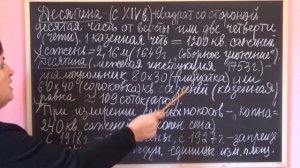 Десятина (с XIV в) - квадрат со стороной
десятая часть от версты или две четверти
(четьи), 1 казенная четь = 1200 кв. сажений
1 сажень = 2,16 м (1649 г. "Соборное уложение")
Десятина (межевая инструкция 1753 г.
прямоугольник 80х30 (тридцатка) или
60х40 (сороковка) кв. сажений (казенная)
равна ≈ 109 соток
При измерении сенных покосов -, копна =
240 кв. сажений сена)
С 1918 с 1927 г. - запрещ
единицы изм. площ.